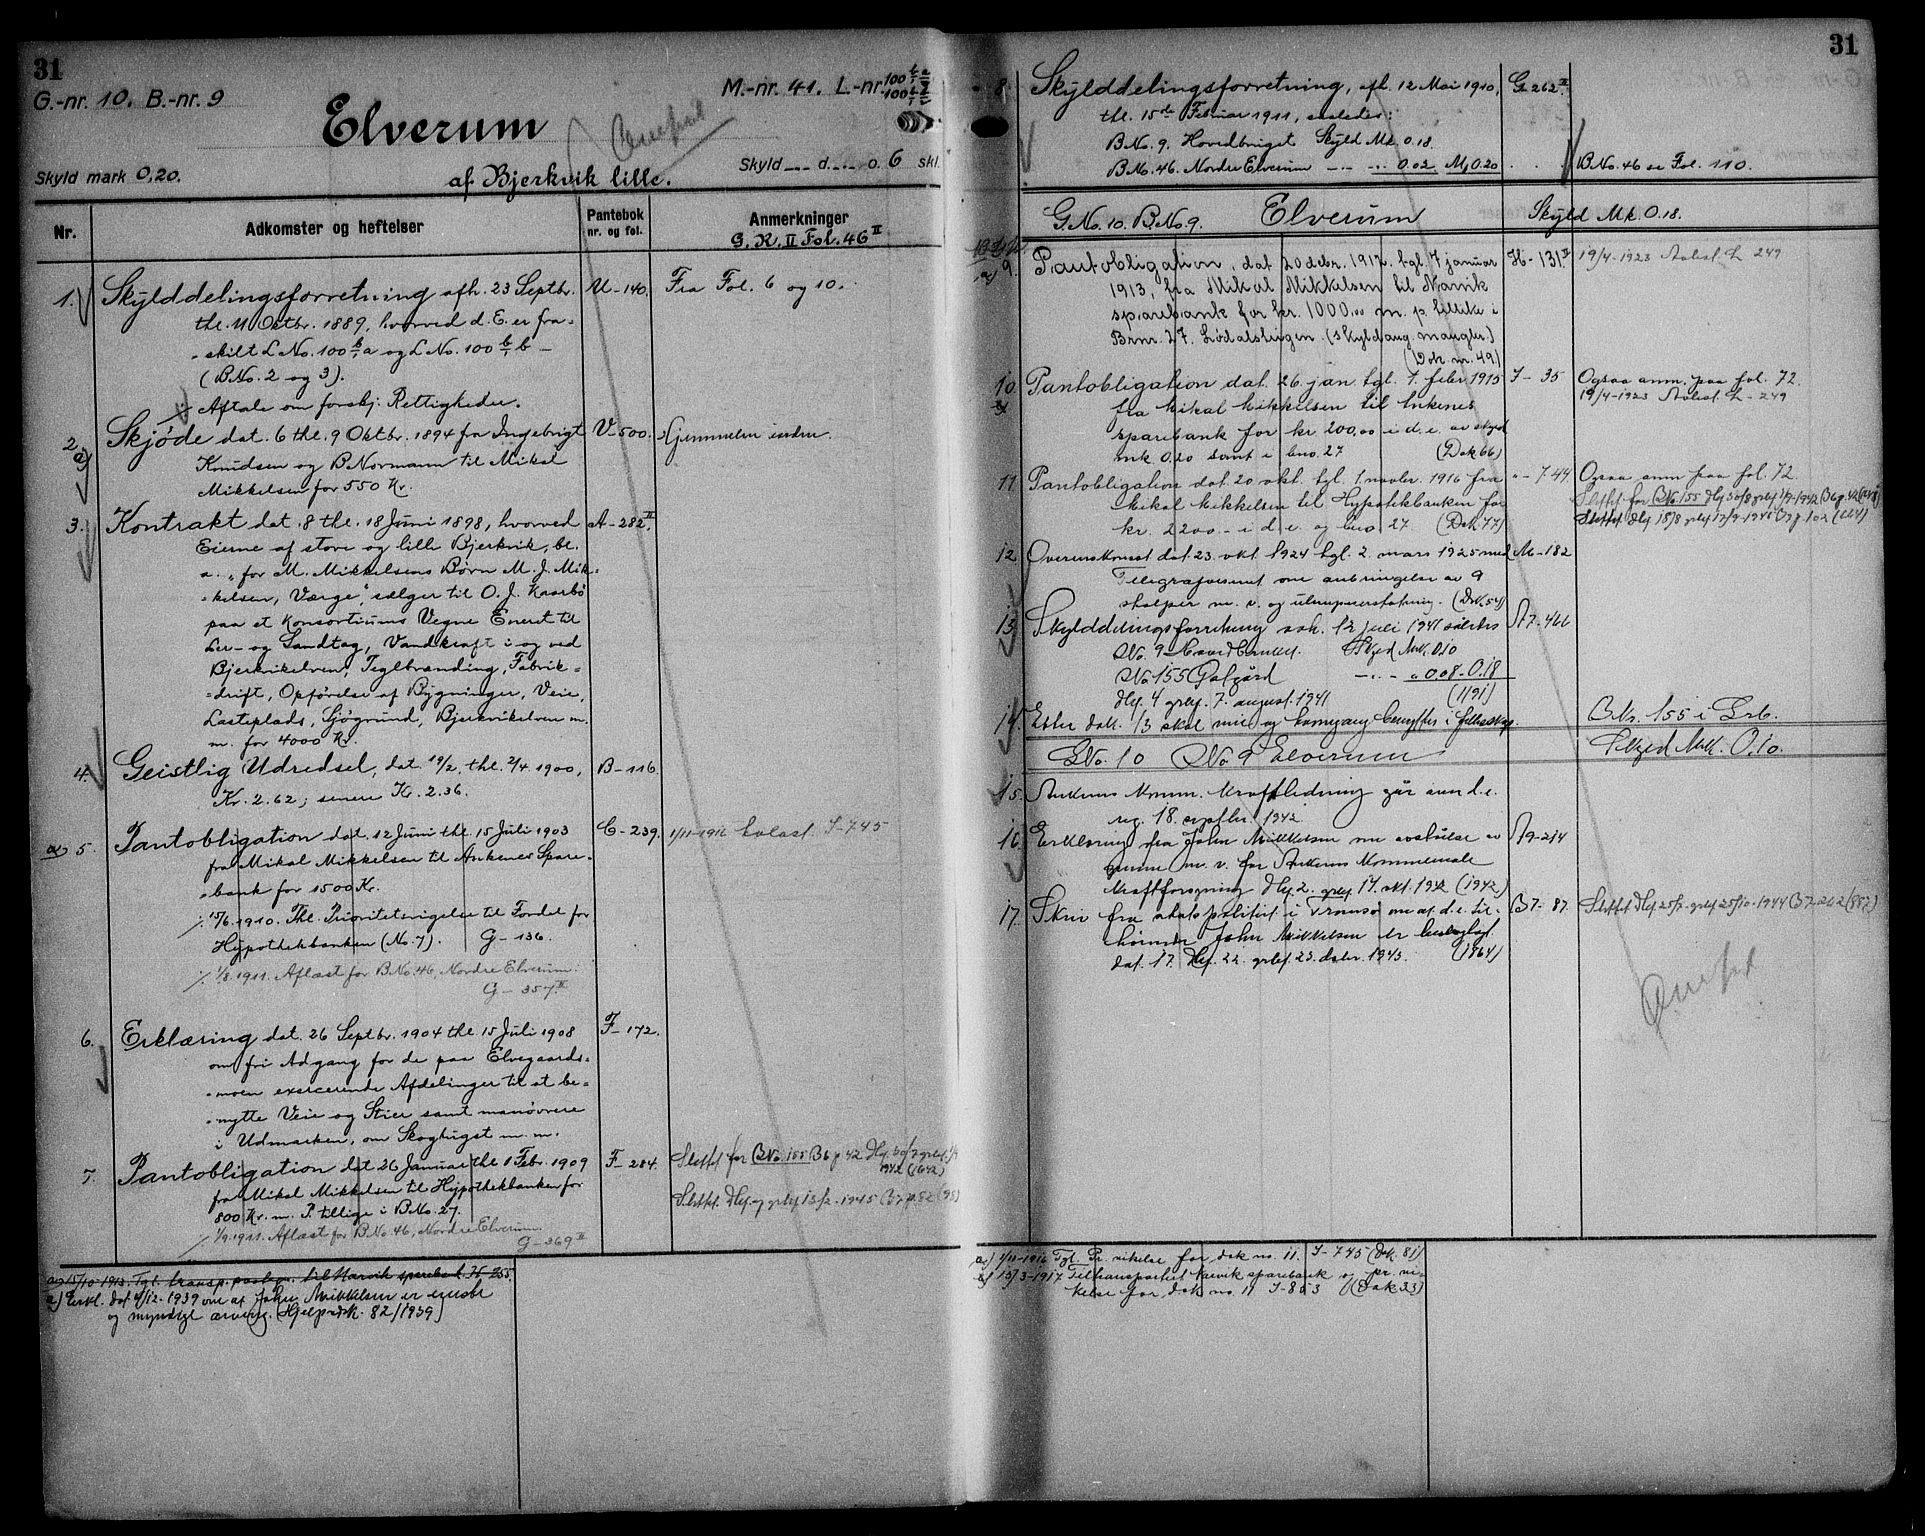 31
G.-nr. 10. B.-nr. 9
M.-nr. 41. L.-nr. 100 100
Elverum
Skyld mark 0,20.
af Bjerkvik lille.
Skyld — d. — o. 6 skl.
Nr.
Adkomster og heftelser
Pantebok nr. og fol.
Anmerkninger
G. R. II Fol. 46 II
1. Skylddelingsforretning afh. 23 Septbr. U-140. Fra Fol. 6 og 10.
thl. 11 Octbr. 1889, hvorved d. E. er fra-
skilt L.No. 100 b/1 a og L.No. 100 b/1 b —
(B.No. 2 og 3).
Aftale om forskj: Rettigheder.
2. a) Skjøde dat. 6 thl. 9 Oktbr. 1894 fra Ingebrigt V-500. Hjemmelen inden.
Knudsen og B Normann til Mikal
Mikkelsen for 550 Kr.
3. Kontrakt dat. 8 thl. 18 Juni 1898, hvorved A-282 II.
Eierne af store og lille Bjerkvik, bl.
a. "for M. Mikkelsens Børn M. J. Mik-
kelsen, Værge", sælger til O. J. Kaarbø
paa et Konsortiums Vegne Eneret til
Ler- og Sandtag, Vandkraft i og ved
Bjerkvikelven, Teglbrænding, Fabrik=
=drift, Opførelse af Bygninger, Veie,
Lasteplads, Sjøgrund, Bjerkvikelven m.
m. for 4000 Kr.
4. Geistlig Udredsel, dat. 19/2, thl. 2/4 1900, B-116.
Kr. 2.62; senere Kr. 2.36.
a) 5. Pantobligation dat. 12 Juni thl. 15 Juli 1903 C-239. 1/11-1916 kvlast. I-745
fra Mikal Mikkelsen til Ankenes Spare-
bank for 1500 Kr.
15/6 1910. Thl. Prioritetsvigelse til Fordel for
Hypothekbanken (No. 7). G-136.
1/8 1911. Aflæst for B.No. 46, Nordre Elverum.
G-357 II
6. Erklæring dat. 26 Septbr. 1904 thl. 15 Juli 1908 F-172.
om fri Adgang for de paa Elvegaards=
moen exercerende Afdelinger til at be=
nytte Veie og Stier samt manøvrere
i Udmarken, om Skoghugst m. m.
7. Pantobligation dat 26 Januar thl 1 Febr. 1909 F-284. Slettet for B.No. 155 B6 p 42
fra Mikal Mikkelsen til Hypothekbanken for 1942 (1642)
800 Kr. m. P. tillige i B.No. 27. 1945 B7 p. 82 (95)
1/9 1911. Aflæst for B.No. 46, Nordre Elverum.
G-369 II
a) 15/10-1913. Tgl. transp. til Narvik sparebank H-255
a) Erkl. dat. 4/12-1939 om at John Mikkelsen er eneste
og myndige arving. (Hjelpedok. 82/1939)
31
8. Skylddelingsforretning, afh. 12 Mai 1910, G 262 II
thl. 15de Februar 1911, saaledes:
B.No. 9. Hovedbruget Skyld Mk. 0.18.
B.No. 46. Nordre Elverum — — 0.02 M. 0.20 B.No. 46 se Fol. 110.
G.No. 10. B.No. 9. Elverum Skyld Mk. 0.18.
a) 9. Pantobligation, dat 20 debr. 1912. tgl. 7 januar H-131 II 19/4-1923 Avlæst L 249
1913, fra Mikal Mikkelsen til Narvik
sparebank for kr. 1000,00 m. p. tillike i
Brnr. 27. (skyldang. mangler.)
(Dok nr. 49.)
10. Pantobligation dat. 26 jan. tgl. 1. febr. 1915 I-35 Ogsaa anm. paa fol. 72.
fra Mikal Mikkelsen til Ankenes 19/4-1923 Avlæst L-249
sparebank for kr 200,00 i d. e. av skyld
mk 0.20 samt i bno. 27 (Dok 66)
11. Pantobligation dat. 20 okt. tgl. 1. novbr. 1916 fra "-744 Ogsaa anm paa fol. 72.
Mikal Mikkelsen til Hypotekbanken for Slettet for B.No. 155
kr. 2200 - i d. e. og bno 27 (Dok 77)
12. Overenskomst dat. 23. okt. 1924 tgl. 2. mars 1925 med M-182
Telegrafvesenet om anbringelse av 9
stolper m. v. og ulempeserstatning. (Dok. 54)
13. Skylddelingsforretning avh. 12 juli 1941 således A7-466
No. 9 Hovedbruket. Skyld Mk. 0.10
No 155 Solgård — 0.08 - 0.18
Dbf. 4 grbf. 7. august 1941 (1191)
14. Etter dok. 13 skal vei og benyttes i fellesskap. B.Nr. 155 i Grb.
GNo. 10 No. 9 Elverum Skyld Mrk. 0.10.
15. Ankenes Komm. Kraftledning går over d. e.
reg. 18. septbr. 1942
16. Erklæring fra John Mikkelsen om avståelse av A9-214
grunn m. v. for Ankenes Kommunale
Kraftforsyning Dbf. 2. grbf. 17. okt. 1942 (1942)
17. Skriv fra statspolitiet i Tromsø om at d. e. til- B7-87. Slettet 1944 B7-262 (887)
hørende John Mikkelsen er beslaglagt
dat. 17. Dbf. 22. grbf. 23. debr. 1943. (1864)
a) 1/11-1916 Tgl. Pr. vikelse for dok no. 11. I-745 (Dok. 81)
15/3-1917. Tgl transportert Narvik sparebank og pr. vi-
kelse for dok no. 11 I-853 (Dok 33)